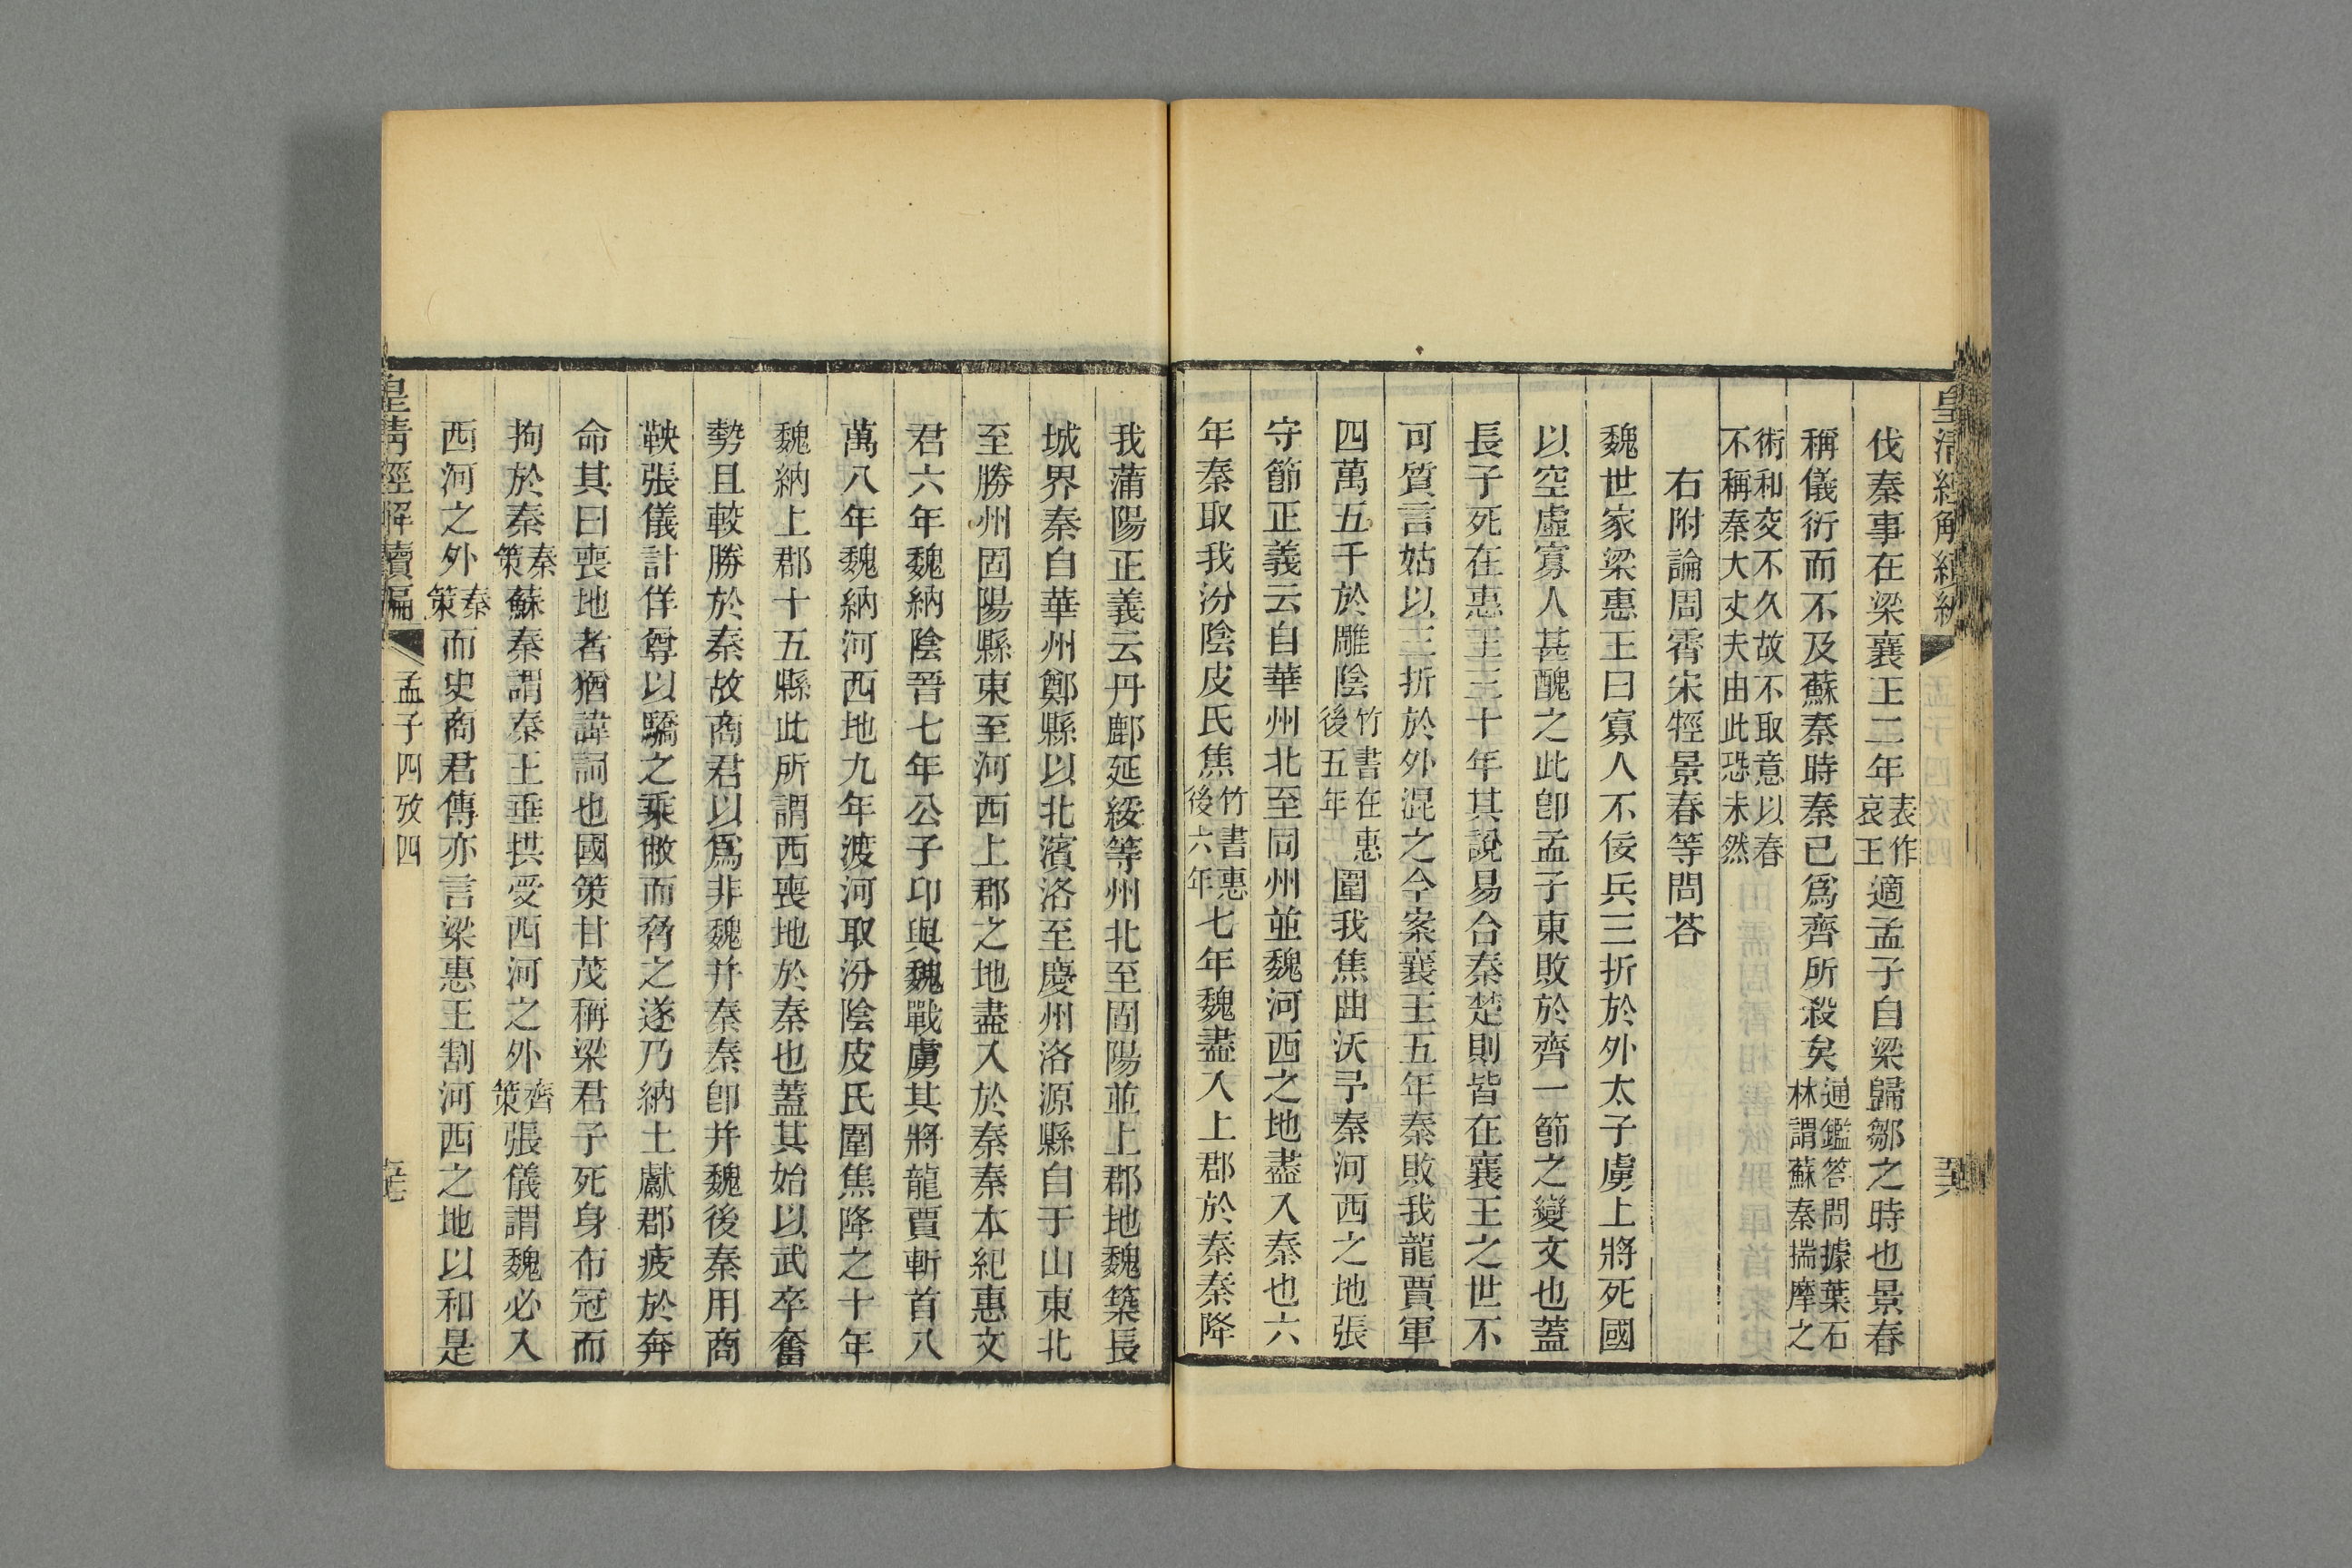 皇清經解續編
伐秦事在梁襄王二年表作哀王適孟子自梁歸鄒之時也景春
稱儀衍而不及蘇秦時秦已爲齊所殺矣通鑑答問據葉石林謂蘇秦揣摩之
術和交不久故不取意以春不稱秦大丈夫由此恐未然
右附論周霄宋牼景春等問荅
魏世家梁惠王曰寡人不佞兵三折於外太子虜上將死國
以空虛寡人甚醜之此卽孟子東敗於齊一節之變文也蓋
長子死在惠王三十年其說易合秦楚則皆在襄王之世不
可質言姑以三折於外混之今案襄王五年秦敗我龍賈軍
四萬五千於雕陰竹書在惠後五年圍我焦曲沃予秦河西之地張
守節正義云自華州北至同州並魏河西之地盡入秦也六
年秦取我汾陰皮氏焦竹書惠後六年七年魏盡入上郡於秦秦降
我蒲陽正義云丹鄜延綏等州北至固陽並上郡地魏築長
城界秦自華州鄭縣以北濱洛至慶州洛源縣自于山東北
至勝州固陽縣東至河西上郡之地盡入於秦秦本紀惠文
君六年魏納陰晉七年公子卬與魏戰虜其將龍賈斬首八
萬八年魏納河西地九年渡河取汾陰皮氏圍焦降之十年
魏納上郡十五縣此所謂西喪地於秦也蓋其始以武卒奮
勢且較勝於秦故商君以爲非魏并秦秦卽并魏後秦用商
鞅張儀計佯尊以驕之乘敝而脅之遂乃納土獻郡疲於奔
命其曰喪地者猶諱詞也國策甘茂稱梁君子死身布冠而
拘於秦秦策蘇秦謂秦王垂拱受西河之外齊策張儀謂魏必入
西河之外秦策而史商君傳亦言梁惠王割河西之地以和是
皇清經解續編
孟子四攷四